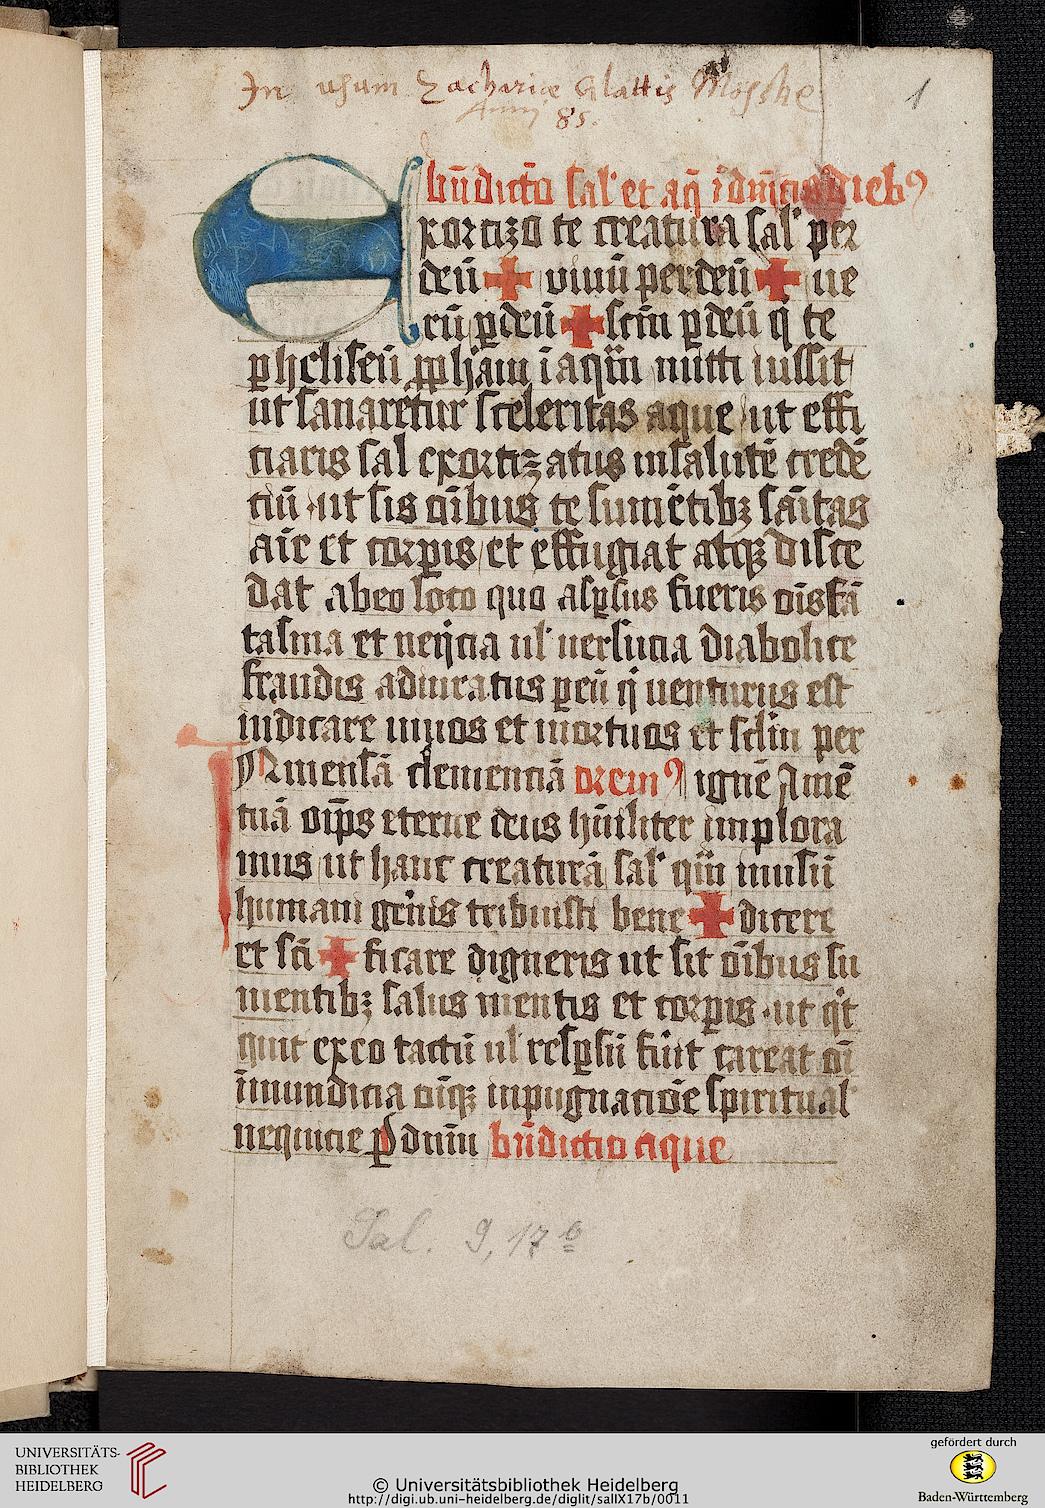 In usum Zachariæ Glattis
Anni 85.
1
bn̄dictō sal' et aq̄ ī dn̄icis diebꝰ
Exorcizo te creatura sal' per
deū ✠ viuū per deū ✠ ue
rū ꝑ deū ✠ scm̄ ꝑ deū q̄ te
ꝑ heliseū ꝓpham ī aquā mitti iussit
ut sanaretur steleritas aque ut effi
ciaris sal exorcizatus in salutē credē
ciū ut sis oībus te sumētibꝫ sāitas
aīe et corꝑis et effugiat atqꝫ disce
dat ab eo loco quo asꝑsus fueris oīs fā
tasma et neq̄cia ul' uersucia diabolice
fraudis adiuratus ꝑ eū q̄ uenturus est
iudicare uiuos et mortuos et sclm̄ per
Inmensā clemenciā orem ꝰ ignē Amē
tuā oīps eterne deus hūiliter implora
mus ut hanc creaturā sal' quā in usū
humani gen̄is tribuisti bene ✠ dicere
et scī ✠ ficare digneris ut sit oībus su
mentibꝫ salus mentis et corꝑis ut q̄c
quit ex eo tactū ul' resꝑsū fūit careat oī
īmundicia oīqꝫ inpugnaciōe spiritual'
nequicie ꝑ dnm̄ bn̄dictio aque
Sal. 9, 17 b
UNIVERSITÄTS-
BIBLIOTHEK
HEIDELBERG
© Universitätsbibliothek Heidelberg
http://digi.ub.uni-heidelberg.de/diglit/salIX17b/0011
gefördert durch
Baden-Württemberg